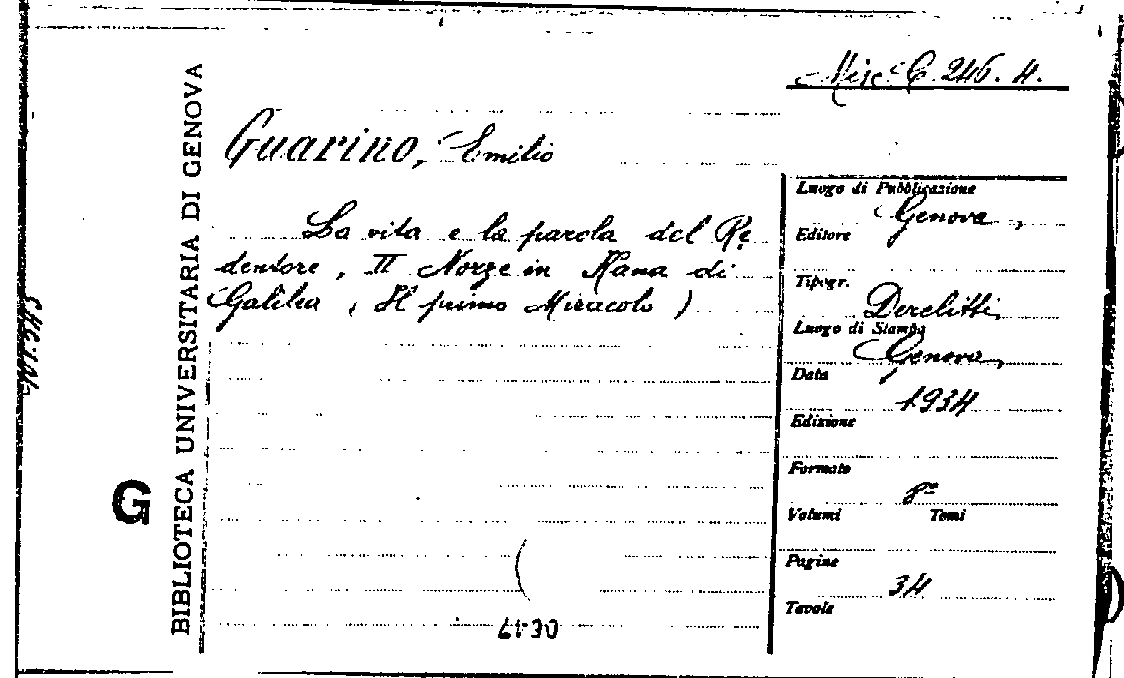 Misc. C. 246. 4.
Guarino, Emilio
La vita e la parola del Re
dentore, II Nozze in Kana di
Galilea (Il primo Miracolo)
Luogo di Pubblicazione
Genova,
Editore
Tipogr.
Derelitti,
Luogo di Stampa
Genova,
Data
1934
Edizione
Formato
8º
Volumi Tomi
Pagine
34
Tavole
BIBLIOTECA UNIVERSITARIA DI GENOVA
G